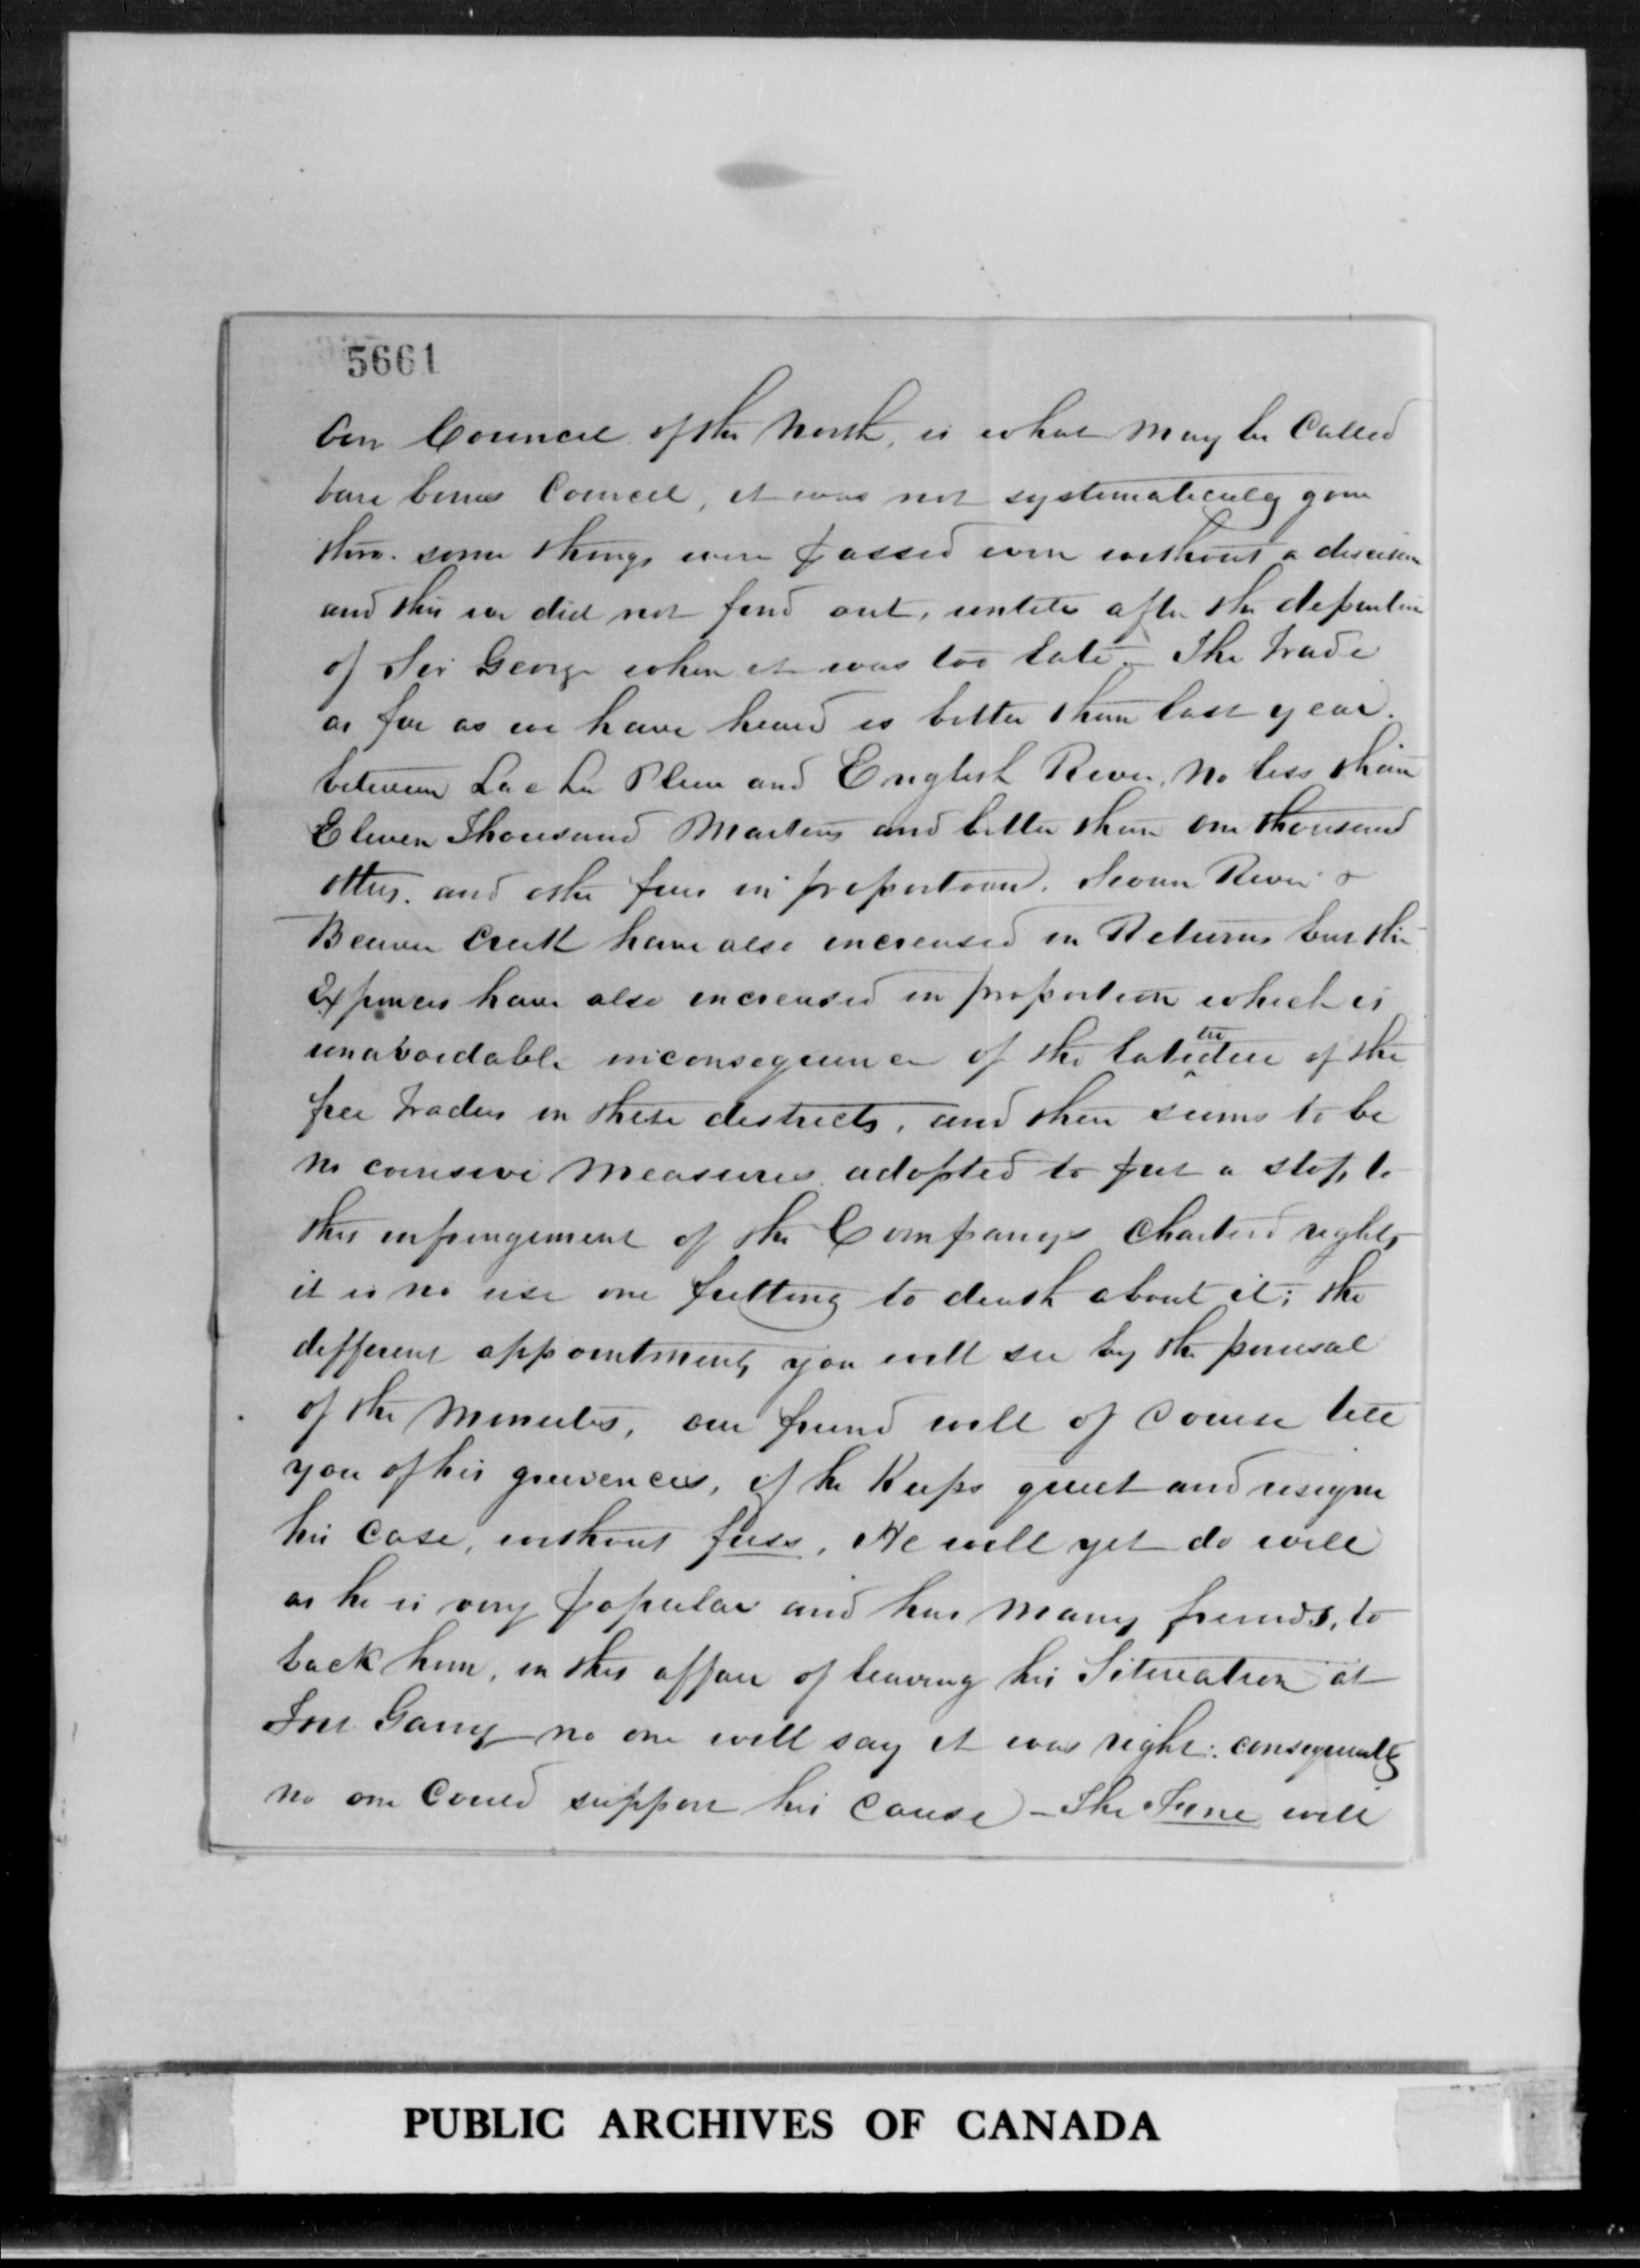 5661
Our Council of the North, is what may be Called
bare bones Council, it was not systematicaly gone
thro. some things were passed even without a discision
and this we did not find out, untill after the departure
of Sir George when it was too late. The Trade
as far as we have heard is better than last year.
between Lac La Pluie and English River, no less than
Eleven Thousand Martens and better than one thousand
otters. and other furs in proportion. Swan River &
Beaver Creek have also increased in Returns but the
Expences have also increased in proportion which is
unavoidable inconsequence of the latitude of the
free Traders in these districts, and there seems to be
no coersive measures adopted to put a stop to
this infringement of the Companys Charterd rights
it is no use one fretting to death about it; the
different appointments you will see by the perusal
of the Minutes, our friend will of course tell
you of his greivences, if he Keeps quiet and resigne
his case, without fuss, He will yet do well
as he is very popular and has many friends, to
back him, in this affair of leaving his Situation at
Fort Garry no one will say it was right: consequently
no one Could support his Cause - The Fine will
PUBLIC ARCHIVES OF CANADA